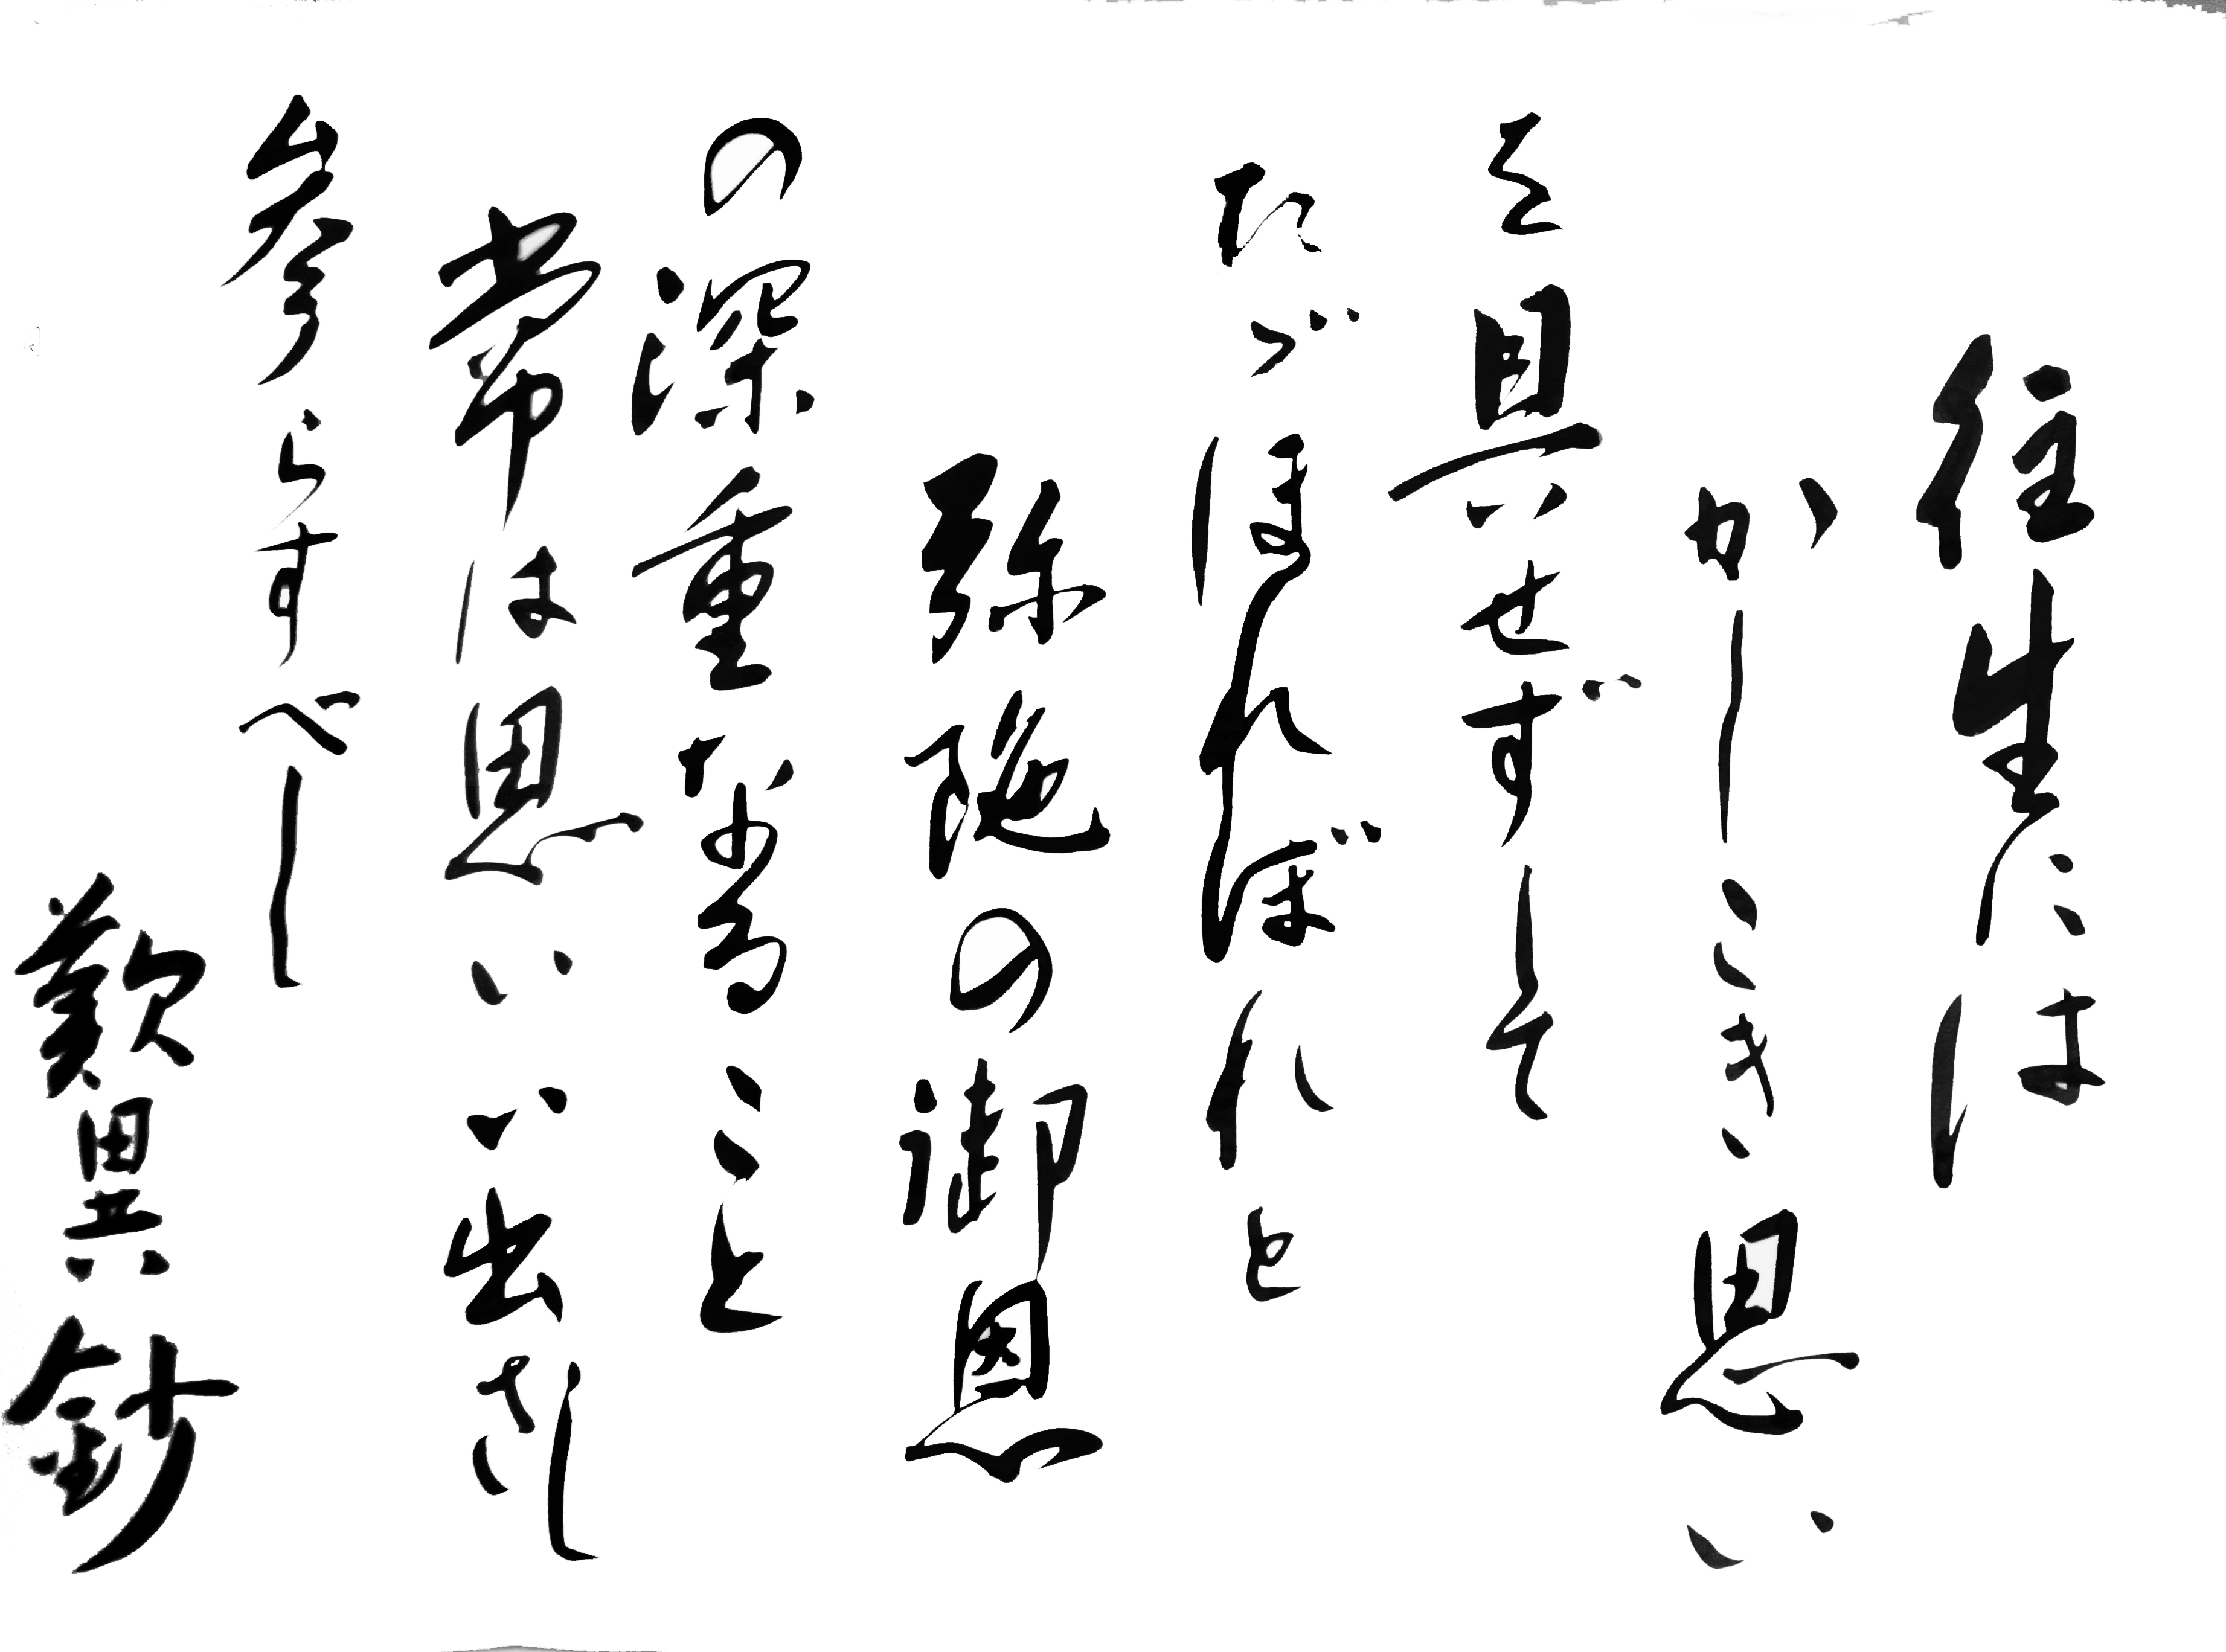 往生には
かしこき思い
を具せずして
ただほれぼれと
弥陀の御恩
の深重なること
常は思いい出し
参らすべし
歎異鈔